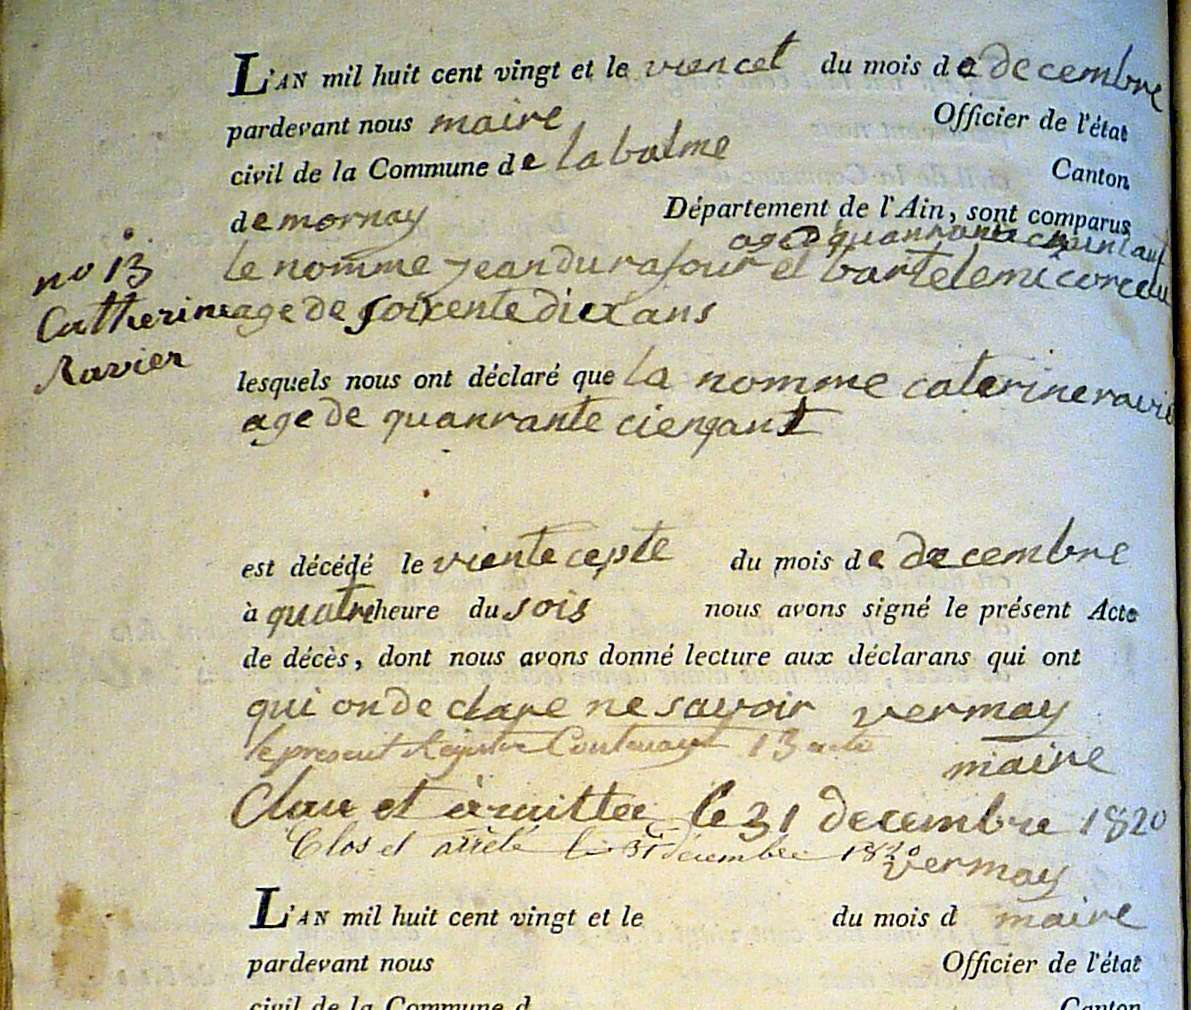 L'AN mil huit cent vingt et le viencet du mois de decembre
pardevant nous maire Officier de l'état
civil de la Commune de la balme Canton
de mornay Département de l'Ain, sont comparus
age quanrante
no 13
Catherine
Ravier
le nomme jean durafour et bartelemi
age de soixente diex ans
lesquels nous ont déclaré que la nomme caterine ravie
age de quanrante cienqant
est décédé le viente cepte du mois de decembre
à quatre heure du sois nous avons signé le présent Acte
de décès, dont nous avons donné lecture aux déclarans qui ont
qui on de clare ne savoir vermay
maire
le present Registre Contenant 13 acte
Clau et le 31 decembre 1820
Clos et arrêté le 31 decembre 1820
vermay
maire
L'AN mil huit cent vingt et le du mois d
pardevant nous Officier de l'état
civil de la Commune d Canton